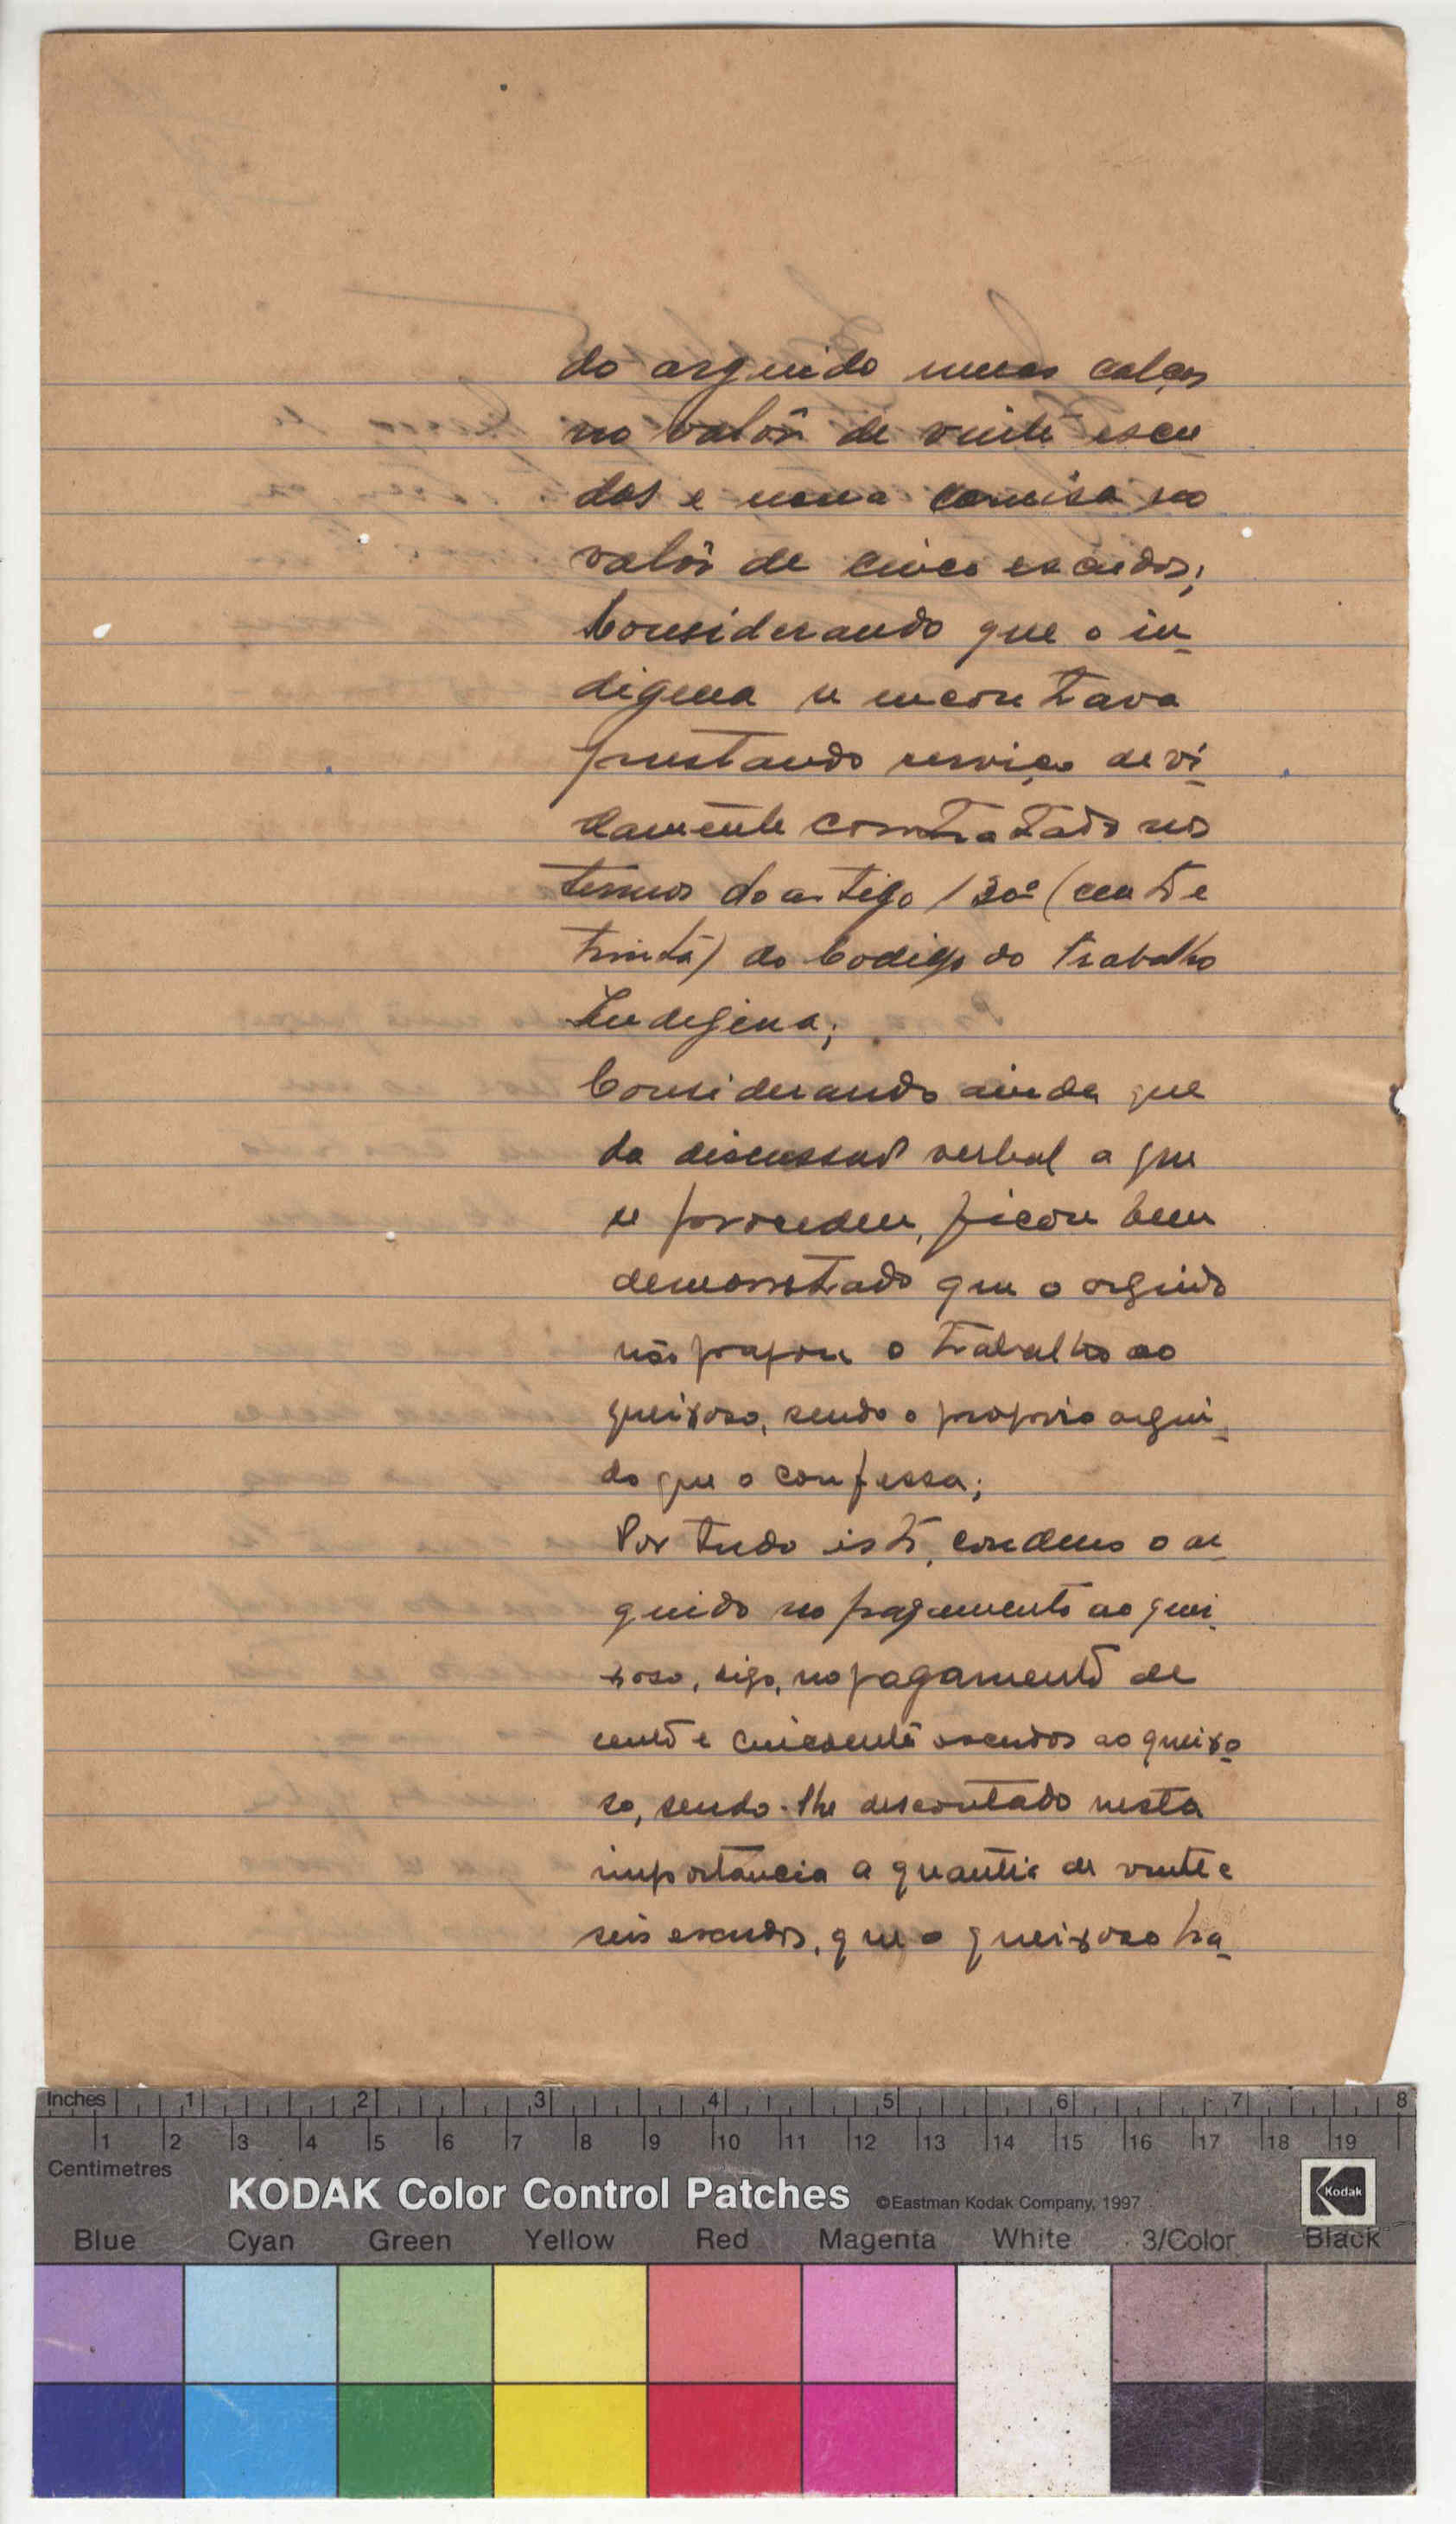 do arguido umas calças
no valôr de vinte escu
dos e uma camisa no
valôr de cinco escudos;
Considerando que o in-
digena se encontrava
prestando serviço devi-
damente contratado nos
termos do artigo 130º (cento e
trinta) do Codigo do Trabalho
Indigena;
Considerando ainda que
da discussão verbal a que
se procedeu, ficou bem
demonstrado que o arguido
não pagou o trabalho ao
queixoso, sendo o proprio argui-
do que o confessa;
Por tudo isto, condeno o ar-
guido no pagamento ao quei-
xoso, digo, no pagamento de
cento e cincoenta escudos ao queixo-
so, sendo-lhe descontado nesta
importancia a quantia de vinte e
seis escudos, que o queixoso ha-
Inches 1 2 3 4 5 6 7 8
1 2 3 4 5 6 7 8 9 10 11 12 13 14 15 16 17 18 19
Centimetres
KODAK Color Control Patches ©Eastman Kodak Company, 1997 Kodak
Blue Cyan Green Yellow Red Magenta White 3/Color Black